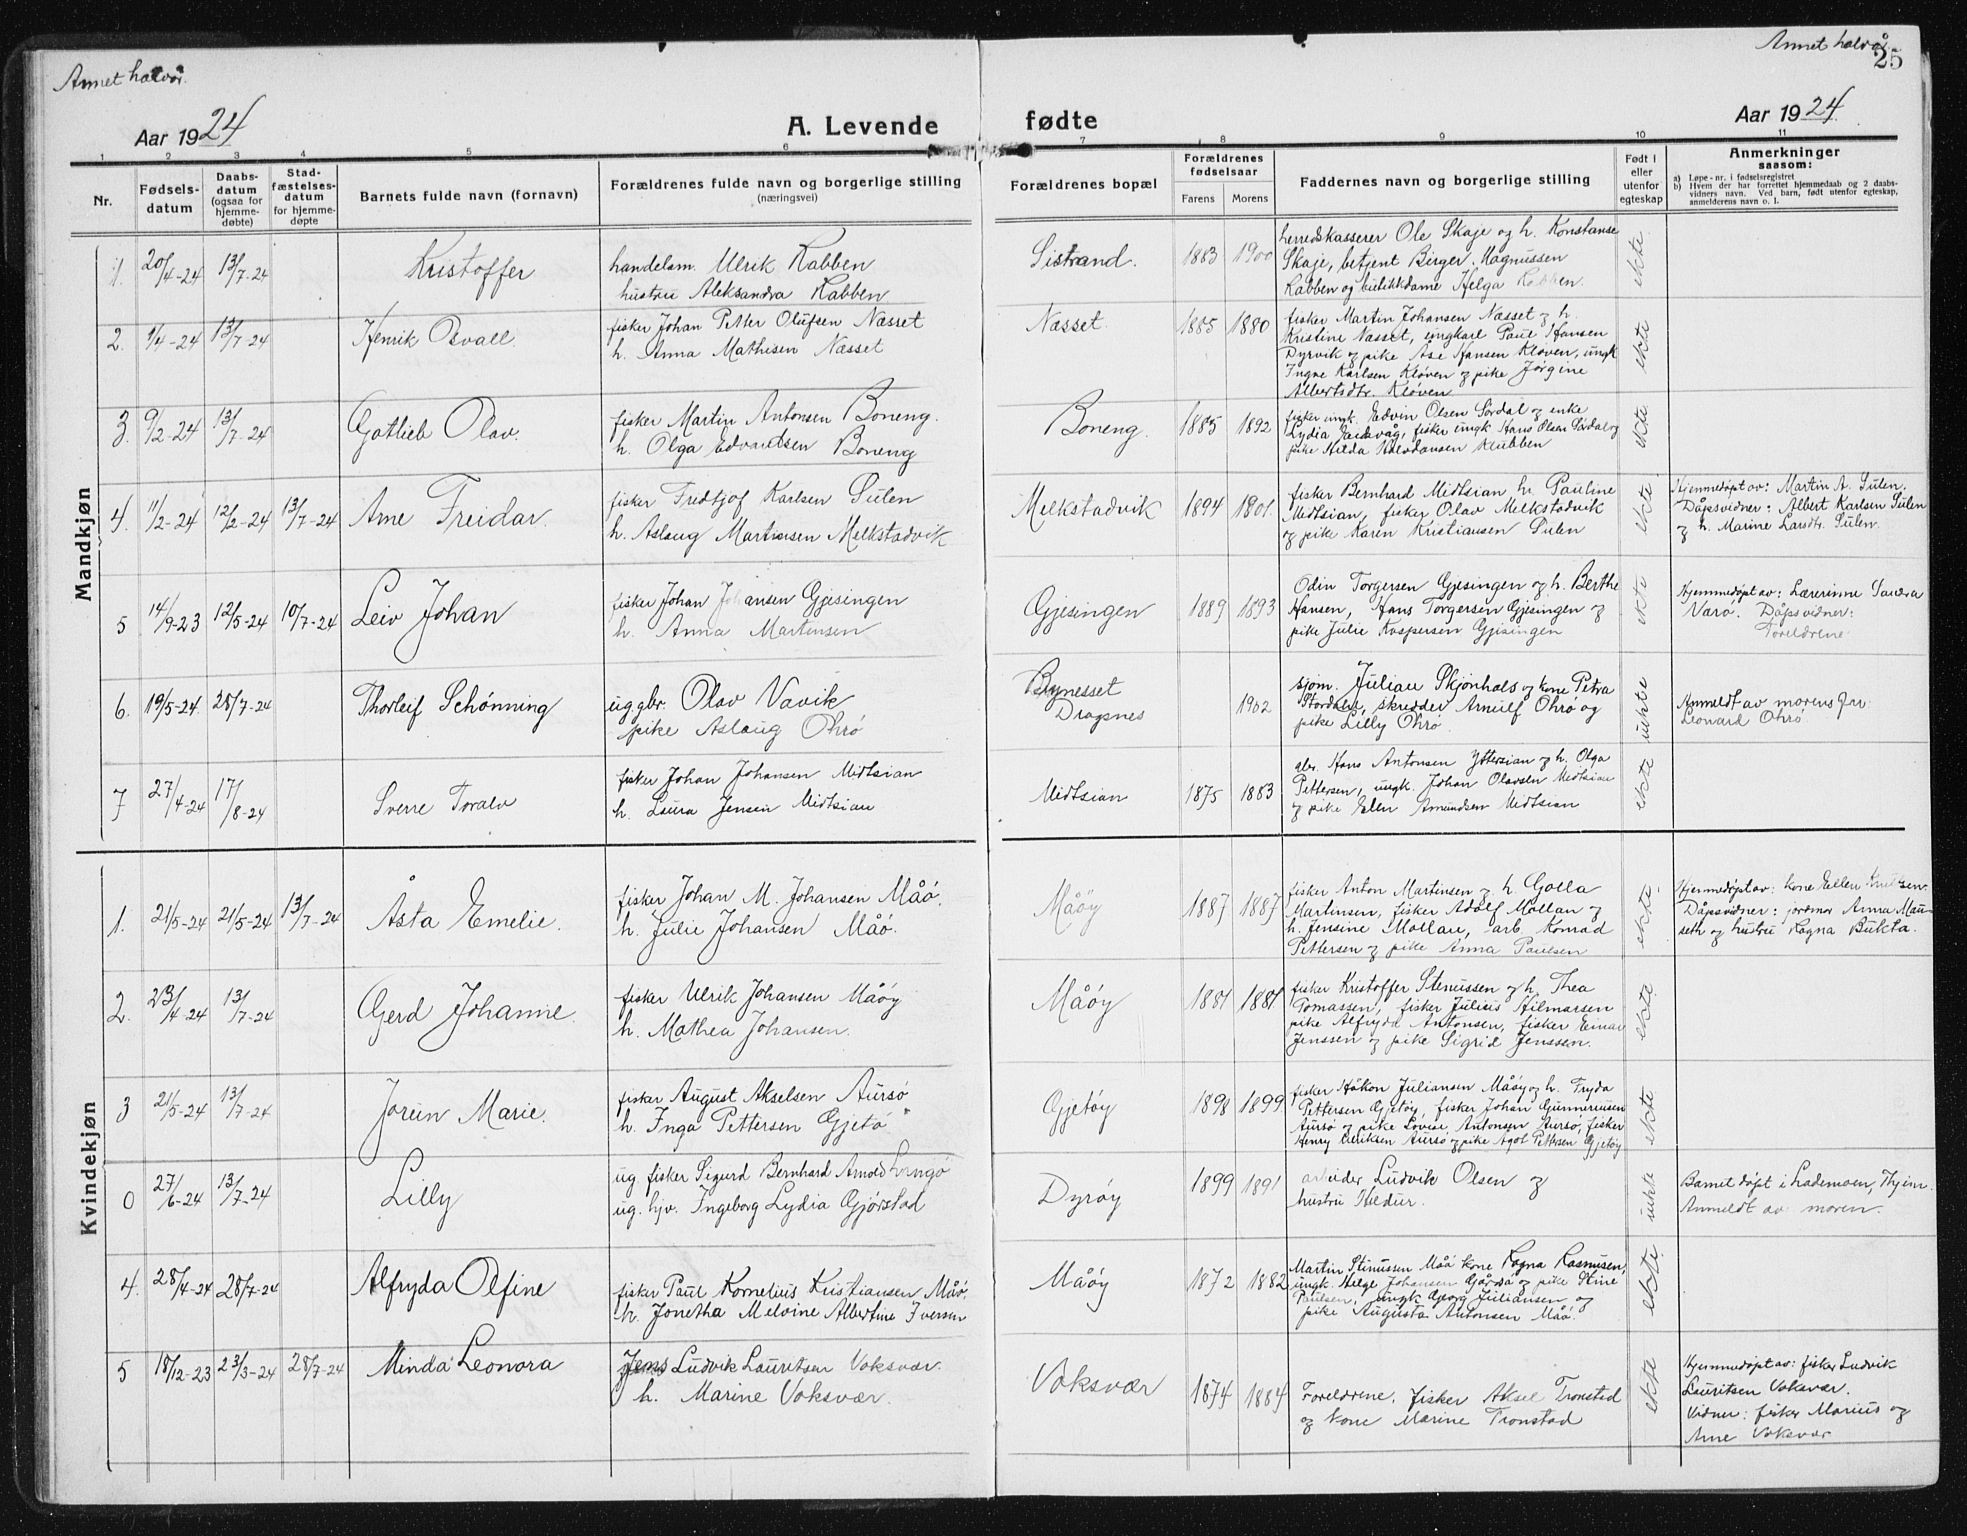 Annet halvår.
Annet halvår
25
Aar 1924
A. Levende fødte
Aar 1924
1 2 3 4 5 6 7 8 9 10 11
Nr.
Fødsels-
datum
Daabs-
datum
(ogsaa for
hjemme-
døbte)
Stad-
fæstelses-
datum
for hjemme-
døpte
Barnets fulde navn (fornavn)
Forældrenes fulde navn og borgerlige stilling
(næringsvei)
Forældrenes bopæl
Forældrenes
fødselsaar
Farens Morens
Faddernes navn og borgerlige stilling
Født i
eller
utenfor
egteskap
Anmerkninger
saasom:
a) Løpe-nr. i fødselsregistret
b) Hvem der har forrettet hjemmedaab og 2 daabs-
vidners navn. Ved barn, født utenfor egteskap,
anmelderens navn o. l.
Mandkjøn
1. 20/4-24 13/7-24
Kristoffer
handelsm. Ulrik Rabben
hustru Aleksandra Rabben
Sistrand. 1883 1900
herredskasserer Ole Skaje og h. Konstanse
Skaje, betjent Birger Magnussen
Rabben og butikkdame Helga Rabben.
ekte
2. 9/4-24 13/7-24
Henrik Osvall.
fisker Johan Petter Olufsen Næsset
h. Anna Mathisen Næsset
Næsset. 1885 1880
fisker Martin Johansen Næsset og h.
Kristine Næsset, ungkarl Paul Hansen
Dyrvik og pike Åse Hansen Kløven, ungk
Ingve Karlsen Kløven og pike Jørgine
Albertsdtr. Kløven
ekte
3. 9/2-24 13/7-24
Gotlieb Olav.
fisker Martin Antonsen Boneng.
h. Olga Edvardtsen Boneng
Boneng. 1885 1892
fisker ungk. Edvin Olsen Sørdal og enke
Lydia Eidsvåg, fisker ungk Hans Olsen Sørdal og
pike Hilda Halvdansen Klubben
ekte
4. 11/2-24 12/2-24 13/7-24
Arne Freidar.
fisker Fredtjof Karlsen Sulen
h. Aslaug Martinsen Melkstadvik
Melkstadvik 1894 1901.
fisker Bernhard Midtsian h. Pauline
Midtsian, fisker Olav Melkstadvik
og pike Karen Kristiansen Sulen
ekte
Hjemmedøpt av: Martin A. Sulen.
Dåpsvidner: Albert Karlsen Sulen
og h. Marine Larsdtr. Sulen.
5 14/9-23 12/5-24 10/7-24
Leiv Johan
fisker Johan Johansen Gjesingen
h. Anna Martinsen
Gjesingen 1889 1893
Odin Torgersen Gjesingen og h. Berthe
Hansen, Hans Torgersen Gjesingen og
pike Julie Kaspersen Gjesingen
ekte
Hjemmedøpt av: Lærerinne Sandra
Varø. Dåpsvidner:
Foreldrene.
6. 19/5-24 28/7-24
Thorleif Schønning
ug. gbr. Olav Vavik
pike Aslaug Ohrø
Bynesset
Dragsnes 1902
sjøm. Julian Skjønhals og kone Petra
Stordalen, skredder Arnulf Ohrø og
pike Lilly Ohrø.
uekte
Anmeldt av morens far
Leonard Ohrø.
7 27/4-24 17/8-24
Sverre Toralv
fisker Johan Johansen Midtsian
h. Laura Jensen Midtsian
Midtsian 1875 1883
gbr. Hans Antonsen Yttersian og h. Olga
Pettersen, ungk. Johan Olavsen Midtsian
og pike Ellen Amundsen Midtsian
ekte
Kvindekjøn
1. 21/5-24 21/5-24 13/7-24
Åsta Emelie.
fisker Johan M. Johansen Måø.
h. Julie Johansen Måø.
Måøy 1887 1887
fisker Anton Martinsen og h. Golla
Martinsen, fisker Adolf Mollan og
h. Jensine Mollan, arb. Konrad
Pettersen og pike Anna Paulsen
ekte.
Hjemmedøpt av: kone Ellen Knutsen.
Dåpsvidner: jordmor Anna Mau-
seth og hustru Ragna Bukta.
2. 23/4-24 13/7-24
Gerd Johanne.
fisker Ulrik Johansen Måøy
h. Mathea Johansen.
Måøy 1881 1881
fisker Kristoffer Stenussen og h. Thea
Tomassen, fisker Julius Hilmarsen
pike Alfryda Antonsen, fisker Einar
Jenssen og pike Sigrid Jenssen.
ekte
3 21/5-24 13/7-24
Jorun Marie.
fisker August Akselsen Aursø
h. Inga Pettersen Gjetø "
Gjetøy 1898 1899
fisker Håkon Juliansen Måøy og h. Fryda
Pettersen Gjetøy, fisker Johan Gunneriusen
Aursø og pike Lovise Antonsen Aursø, fisker
Henry Ulriksen Aursø og pike Agot Pettersen Gjetøy
ekte
0 27/6-24 13/7-24
Lilly
ug fisker Sigurd Bernhard Arnold Langø
ug. hjv. Ingeborg Lydia Gjørstad
Dyrøy 1899 1891
arbeider Ludvik Olsen og
hustru Hildur.
uekte
Barnet døpt i Lademoen, Thjem.
Anmeldt av moren.
4. 28/4-24 28/7-24
Alfryda Olfine
fisker Paul Kornelius Kristiansen Måø.
h. Jonetha Melvine Albertine Iversen
Måøy 1872 1882
Martin Stinussen Måø kone Ragna Rasmusen,
ungk. Helge Johansen Gårdsø og pike Stine
Paulsen, ungk Georg Juliansen og
pike Augusta Antonsen Måø.
ekte
5 18/12-23 23/3-24 28/7-24
Minda Leonora
Jens Ludvik Lauritsen Voksvær.
h. Marine Voksvær.
Voksvær 1874 1884
Foreldrene, fisker Aksel Tronstad
og kone Marine Tronstad
ekte
Hjemmedøpt av: fisker Ludvik
Lauritsen Voksvær.
Vidner: fisker Marius og
Arne Voksvær